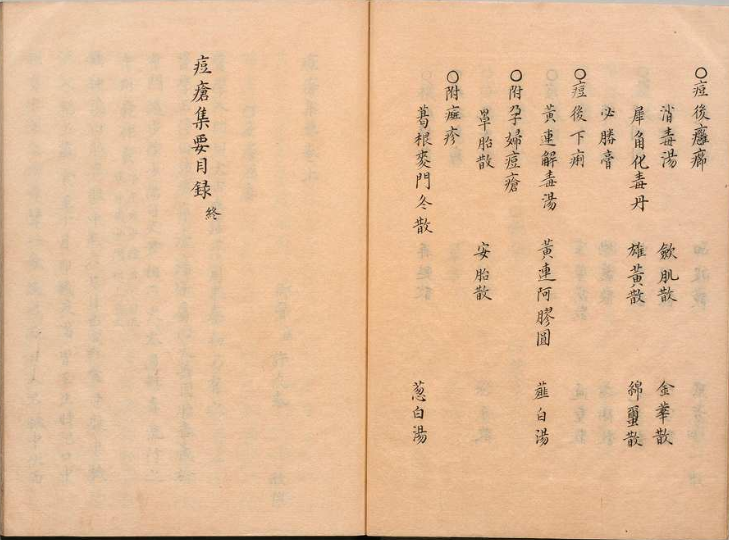 〇痘後癰癤
消毒湯 斂肌散 金華散
犀角化毒丹 雄黃散 綿蠒散
必勝膏
〇痘後下痢
黃連解毒湯 黃連阿膠圓 薤白湯
〇附孕婦痘瘡
罩胎散 安胎散
〇附痲疹
葛根麥門冬散 葱白湯
痘瘡集要目録 終